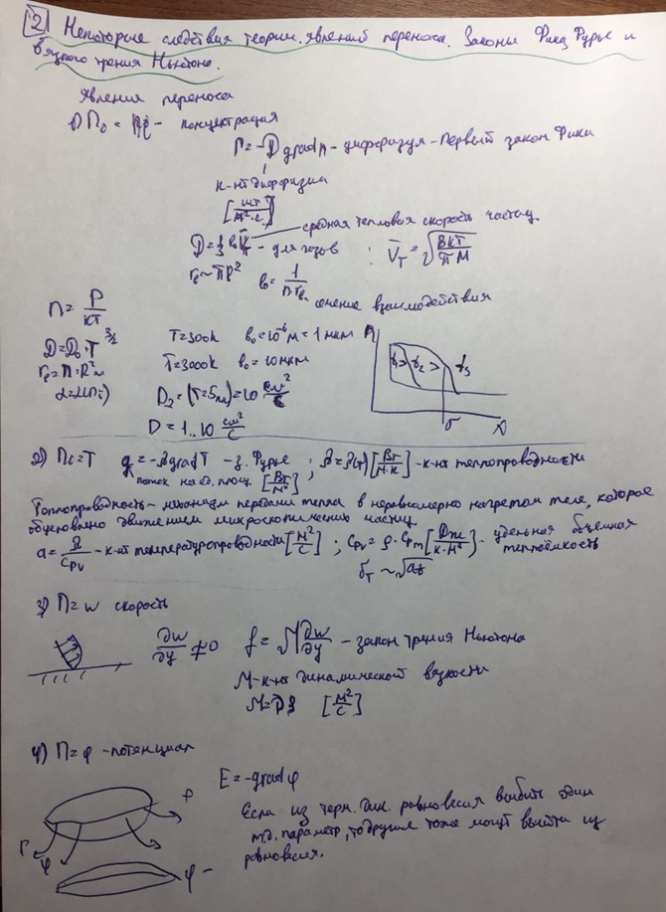 2 Некоторые следствия теории явлений переноса. Законы Фика, Фурье и
вязкого трения Ньютона.
Явления переноса
концентрация
Γ = -D grad n - диффузия - Первый закон Фика
к-нт диффузии
[шт/м²·с]
средняя тепловая скорость частиц
D = 1/3 l₀ V̄ - для газов ; V̄_T = √(8kT/πM)
l₀ = 1/(nσ)
сечение взаимодействия
n = P/kT
D = D₀·T^3/2
T=300K l₀=10⁻⁶м = 1 мкм
T=3000K l₀=10мкм
D = 1..10 см²/с
2) П=T q = -λ grad T - з. Фурье ; λ=λ(T) [Вт/м·К] - к-нт теплопроводности
поток на площ. [Вт/м²]
Теплопроводность - механизм передачи тепла в неравномерно нагретом теле, которое
обусловлено движением микроскопических частиц
a = λ/Cpv - к-нт температуропроводности [м²/с] ; Cpv = ρ·Cpm [Дж/К·м³] - удельная объемная
теплоёмкость
δ_T ~ √at
3) П=w скорость
∂w/∂y ≠0 - закон трения Ньютона
к-нт динамической вязкости
[м²/с]
4) П=φ - потенциал
E = -grad φ
Если из терм. равновесия выбить один
параметр, то другие тоже могут выйти из
равновесия.